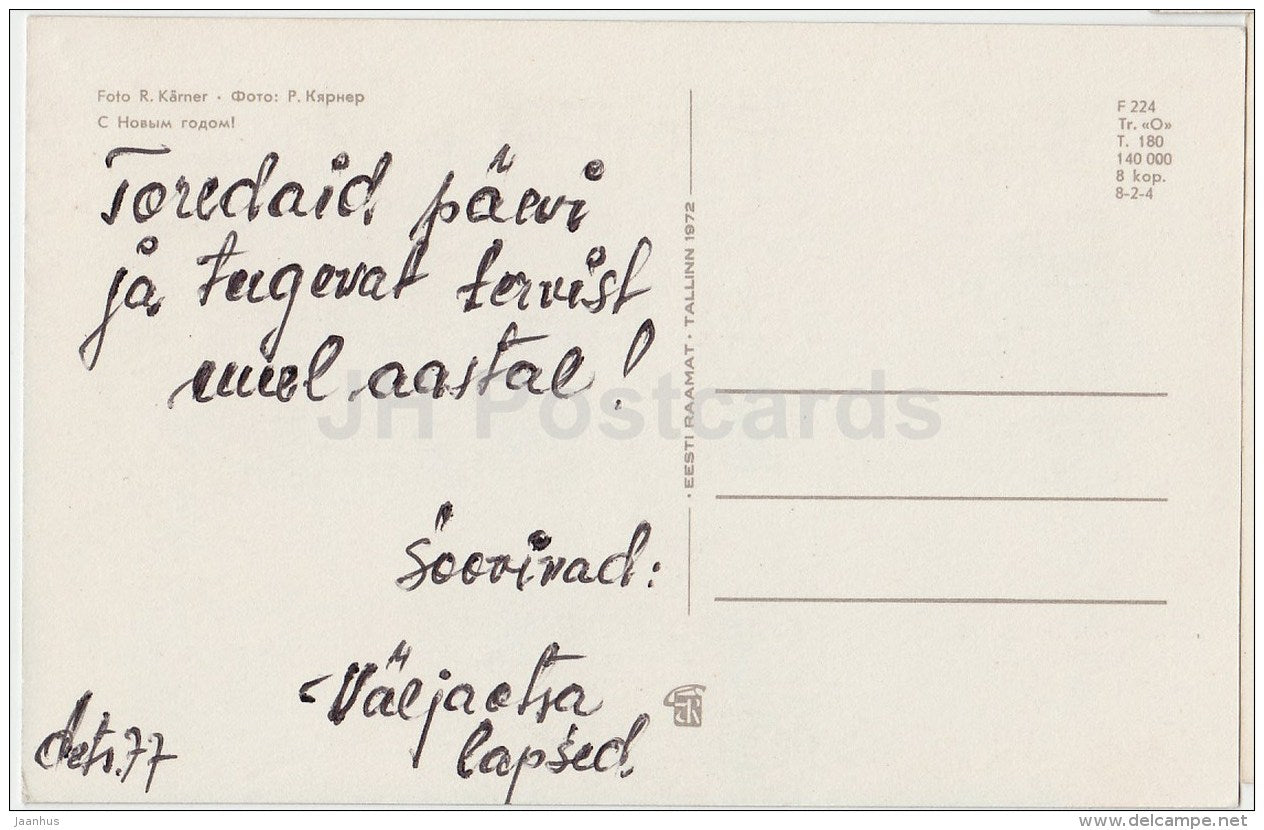 Foto R. Kärner · Фото: Р. Кярнер
С Новым годом!
Toredaid päevi
ja tugevat tervist
uuel aastal!
Soovivad:
Väljaotsa
lapsed.
dets. 77
· EESTI RAAMAT · TALLINN 1972
F 224
Tr. «O»
T. 180
140 000
8 kop.
8-2-4
ER
JH Postcards
Jaanhus
www.delcampe-online.net